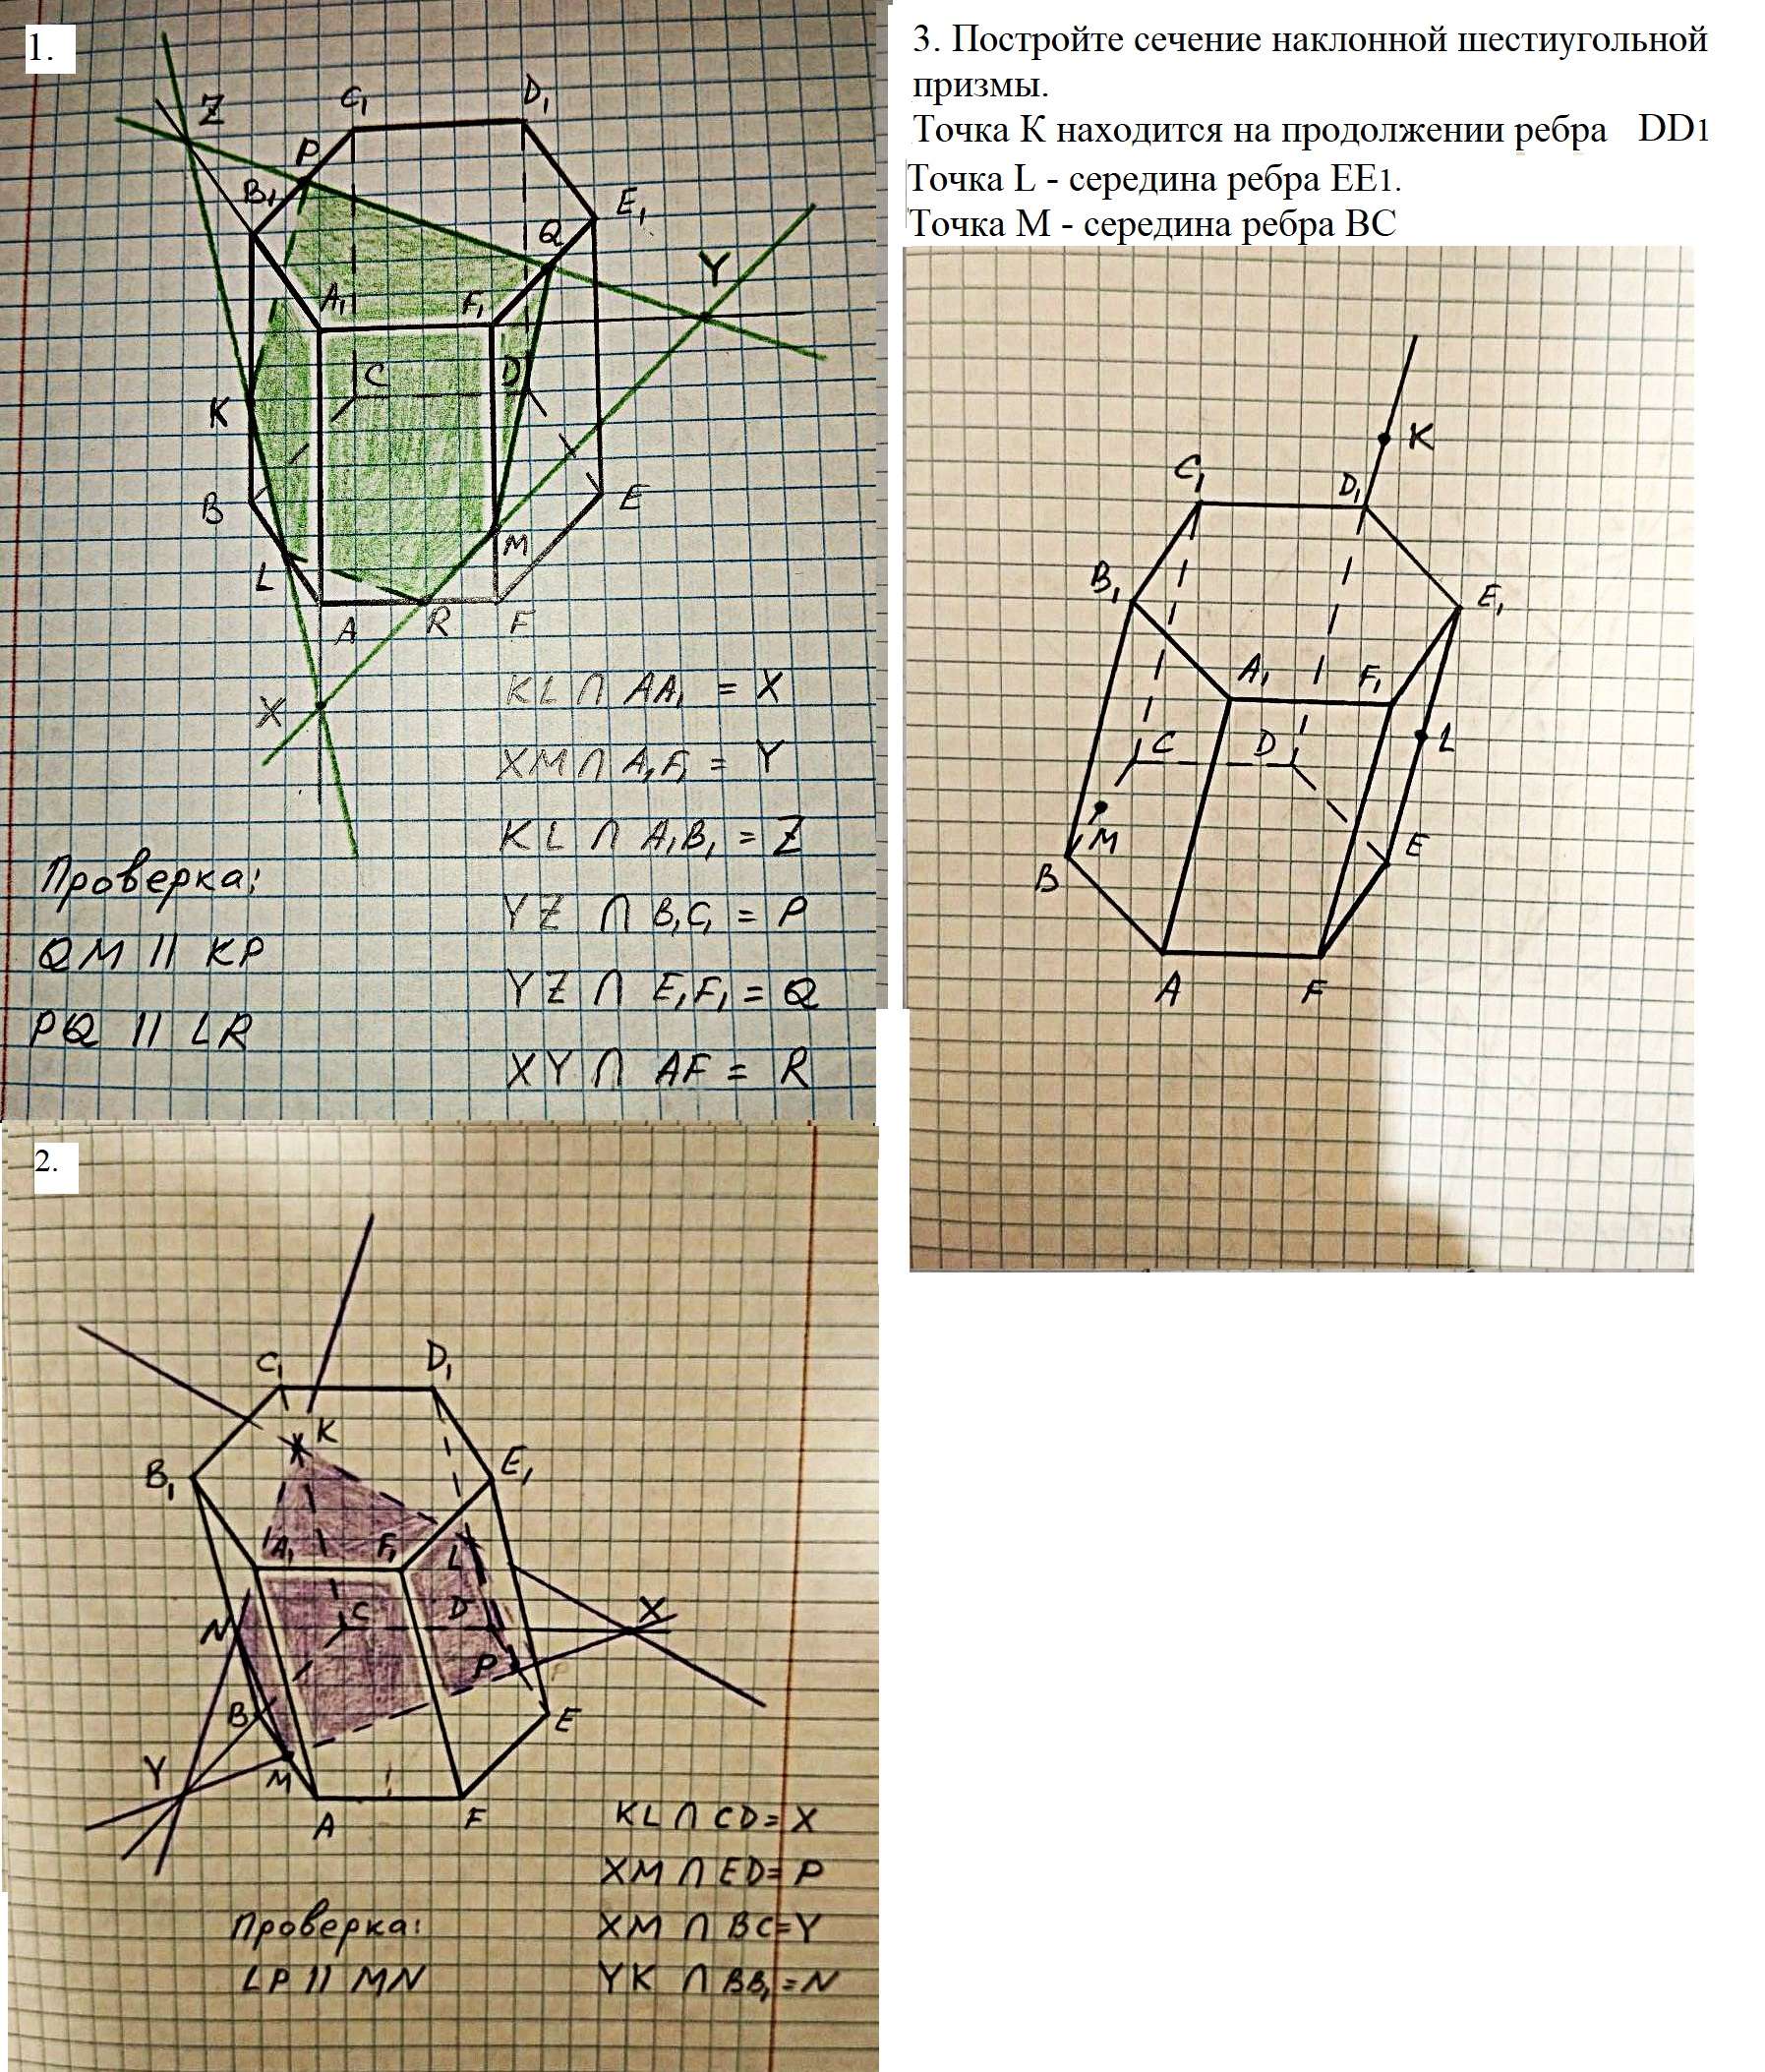 1.
Z
C₁
D₁
P
B₁
E₁
Q
Y
A₁
F₁
C
D
K
B
E
M
L
A
R
F
X
KL ∩ AA₁ = X
XM ∩ A₁F₁ = Y
KL ∩ A₁B₁ = Z
YZ ∩ B₁C₁ = P
YZ ∩ E₁F₁ = Q
XY ∩ AF = R
Проверка:
QM || KP
PQ || LR
2.
C₁
D₁
K
B₁
E₁
A₁
F₁
L
C
D
X
N
P
B
E
Y
M
A
F
KL ∩ CD = X
XM ∩ ED = P
XM ∩ BC = Y
YK ∩ BB₁ = N
Проверка:
LP || MN
3. Постройте сечение наклонной шестиугольной
призмы.
Точка К находится на продолжении ребра DD1
Точка L - середина ребра EE1.
Точка М - середина ребра ВС
K
C₁
D₁
B₁
E₁
A₁
F₁
C
D
L
M
E
B
A
F